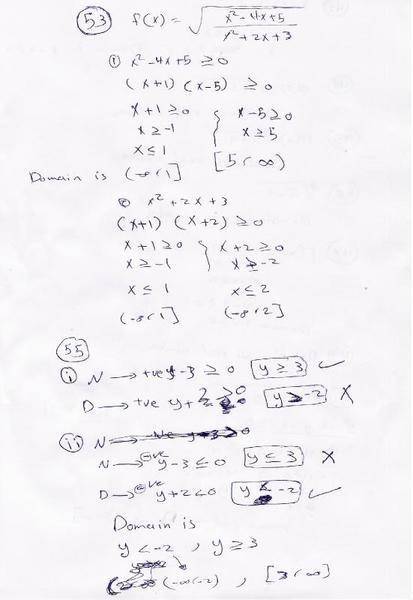 53 f(x) = √(x²-4x+5 / x²+2x+3)
① x²-4x+5 ≥0
(x+1) (x-5) ≥0
x+1≥0 { x-5≥0
x≥-1 x≥5
x≤1 [5,∞)
Domain is (-∞,1]
② x²+2x+3
(x+1) (x+2) ≥0
x+1≥0 { x+2≥0
x≥-1 x≥-2
x≤1 x≤2
(-∞,1] (-∞,2]
55
i N → +ve y-3 ≥0 y≥3 ✓
D → +ve y+2>0 y>-2 X
ii N
N → -ve y-3≤0 y≤3 X
D → -ve y+2<0 y<-2 ✓
Domain is
y<-2 , y≥3
(-∞,-2) , [3,∞]